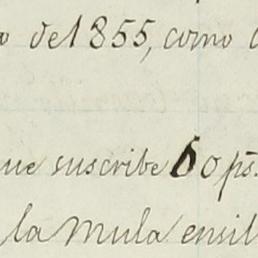 o de 1855, como
ue suscribe 60 ps.
la Mula ensil